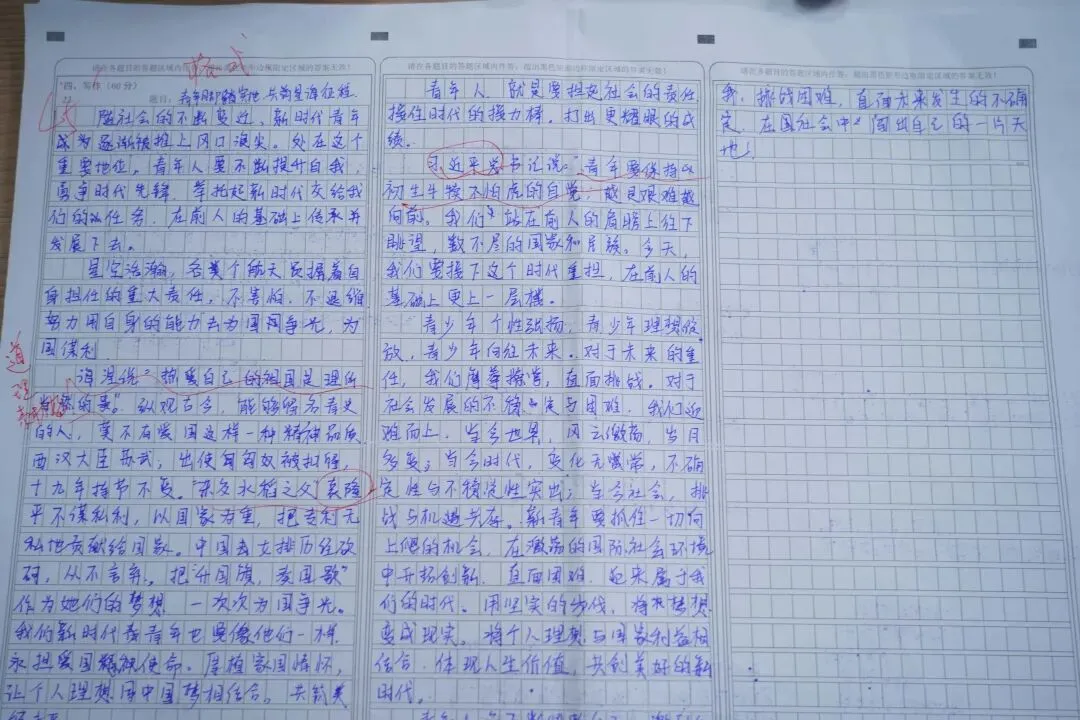 格式
请在各题目的答题区域内作答，超出黑色矩形边框限定区域的答案无效！
四、写作（60分）
题目：青年脚踏实地 共前星海征程
随社会的不断变迁，新时代青年
成为逐渐被推上风口浪尖。处在这个
重要地位。青年人要不断提升自我，
勇争时代先锋，举托起新时代交给我
们的任务，在前人的基础上传承并
发展下去。
星空浩瀚，各类个航天员握着自
身担任的重大责任，不害怕，不退缩
努力用自身的能力去为国网争光，为
国谋利
道理
说"热爱自己的祖国是理所
当然的事"。纵观古今，能够留名青史
的人，莫不有爱国这样一种精神品质
西汉大臣苏武，出使匈匈奴被扣留，
十九年持节不变。"杂交水稻之父"袁隆
平不谋私利，以国家为重，把专利无
私地贡献给国家。中国女排历经砍
从不言弃。把"升国旗，奏国歌"
作为她们的梦想 一次次为国争光。
我们新时代青年也要像他们一样，
承担爱国精神使命。厚植家国情怀，
让个人理想同中国梦相结合。共筑美
请在各题目的答题区域内作答，超出黑色矩形边框限定区域的答案无效！
青年人，就是要担起社会的责任
接住时代的接力棒。打出更耀眼的成
绩。
习近平总书记说："青年要保持以
初生牛犊不怕虎的自觉，越是艰难越
向前。我们站在前人的肩膀上往下
眺望，数不尽的国家和房屋。今天，
我们要接下这个时代重担，在前人的
基础上更上一层楼。
青少年个性张扬，青少年理想绽
放，青少年向往未来。对于未来的重
任，我们直面挑战。对于
社会发展的不稳定与困难，我们迎
难而上。当今世界，风云激荡，岁月
多变；当今时代，变化无常，不确
定性与不稳定性突出；当今社会，挑
战与机遇共存。新青年要抓住一切向
上爬的机会，在激荡的国际社会环境
中开拓创新，直面困难，起来属于我
们的时代。用坚实的步伐，将梦想
变成现实。将个人理想与国家利益相
结合，体现人生价值，共创美好的新
时代。
请在各题目的答题区域内作答，超出黑色矩形边框限定区域的答案无效！
我，挑战困难，直面未来发生的不确
定，在国社会中闯出自己的一片天
地！